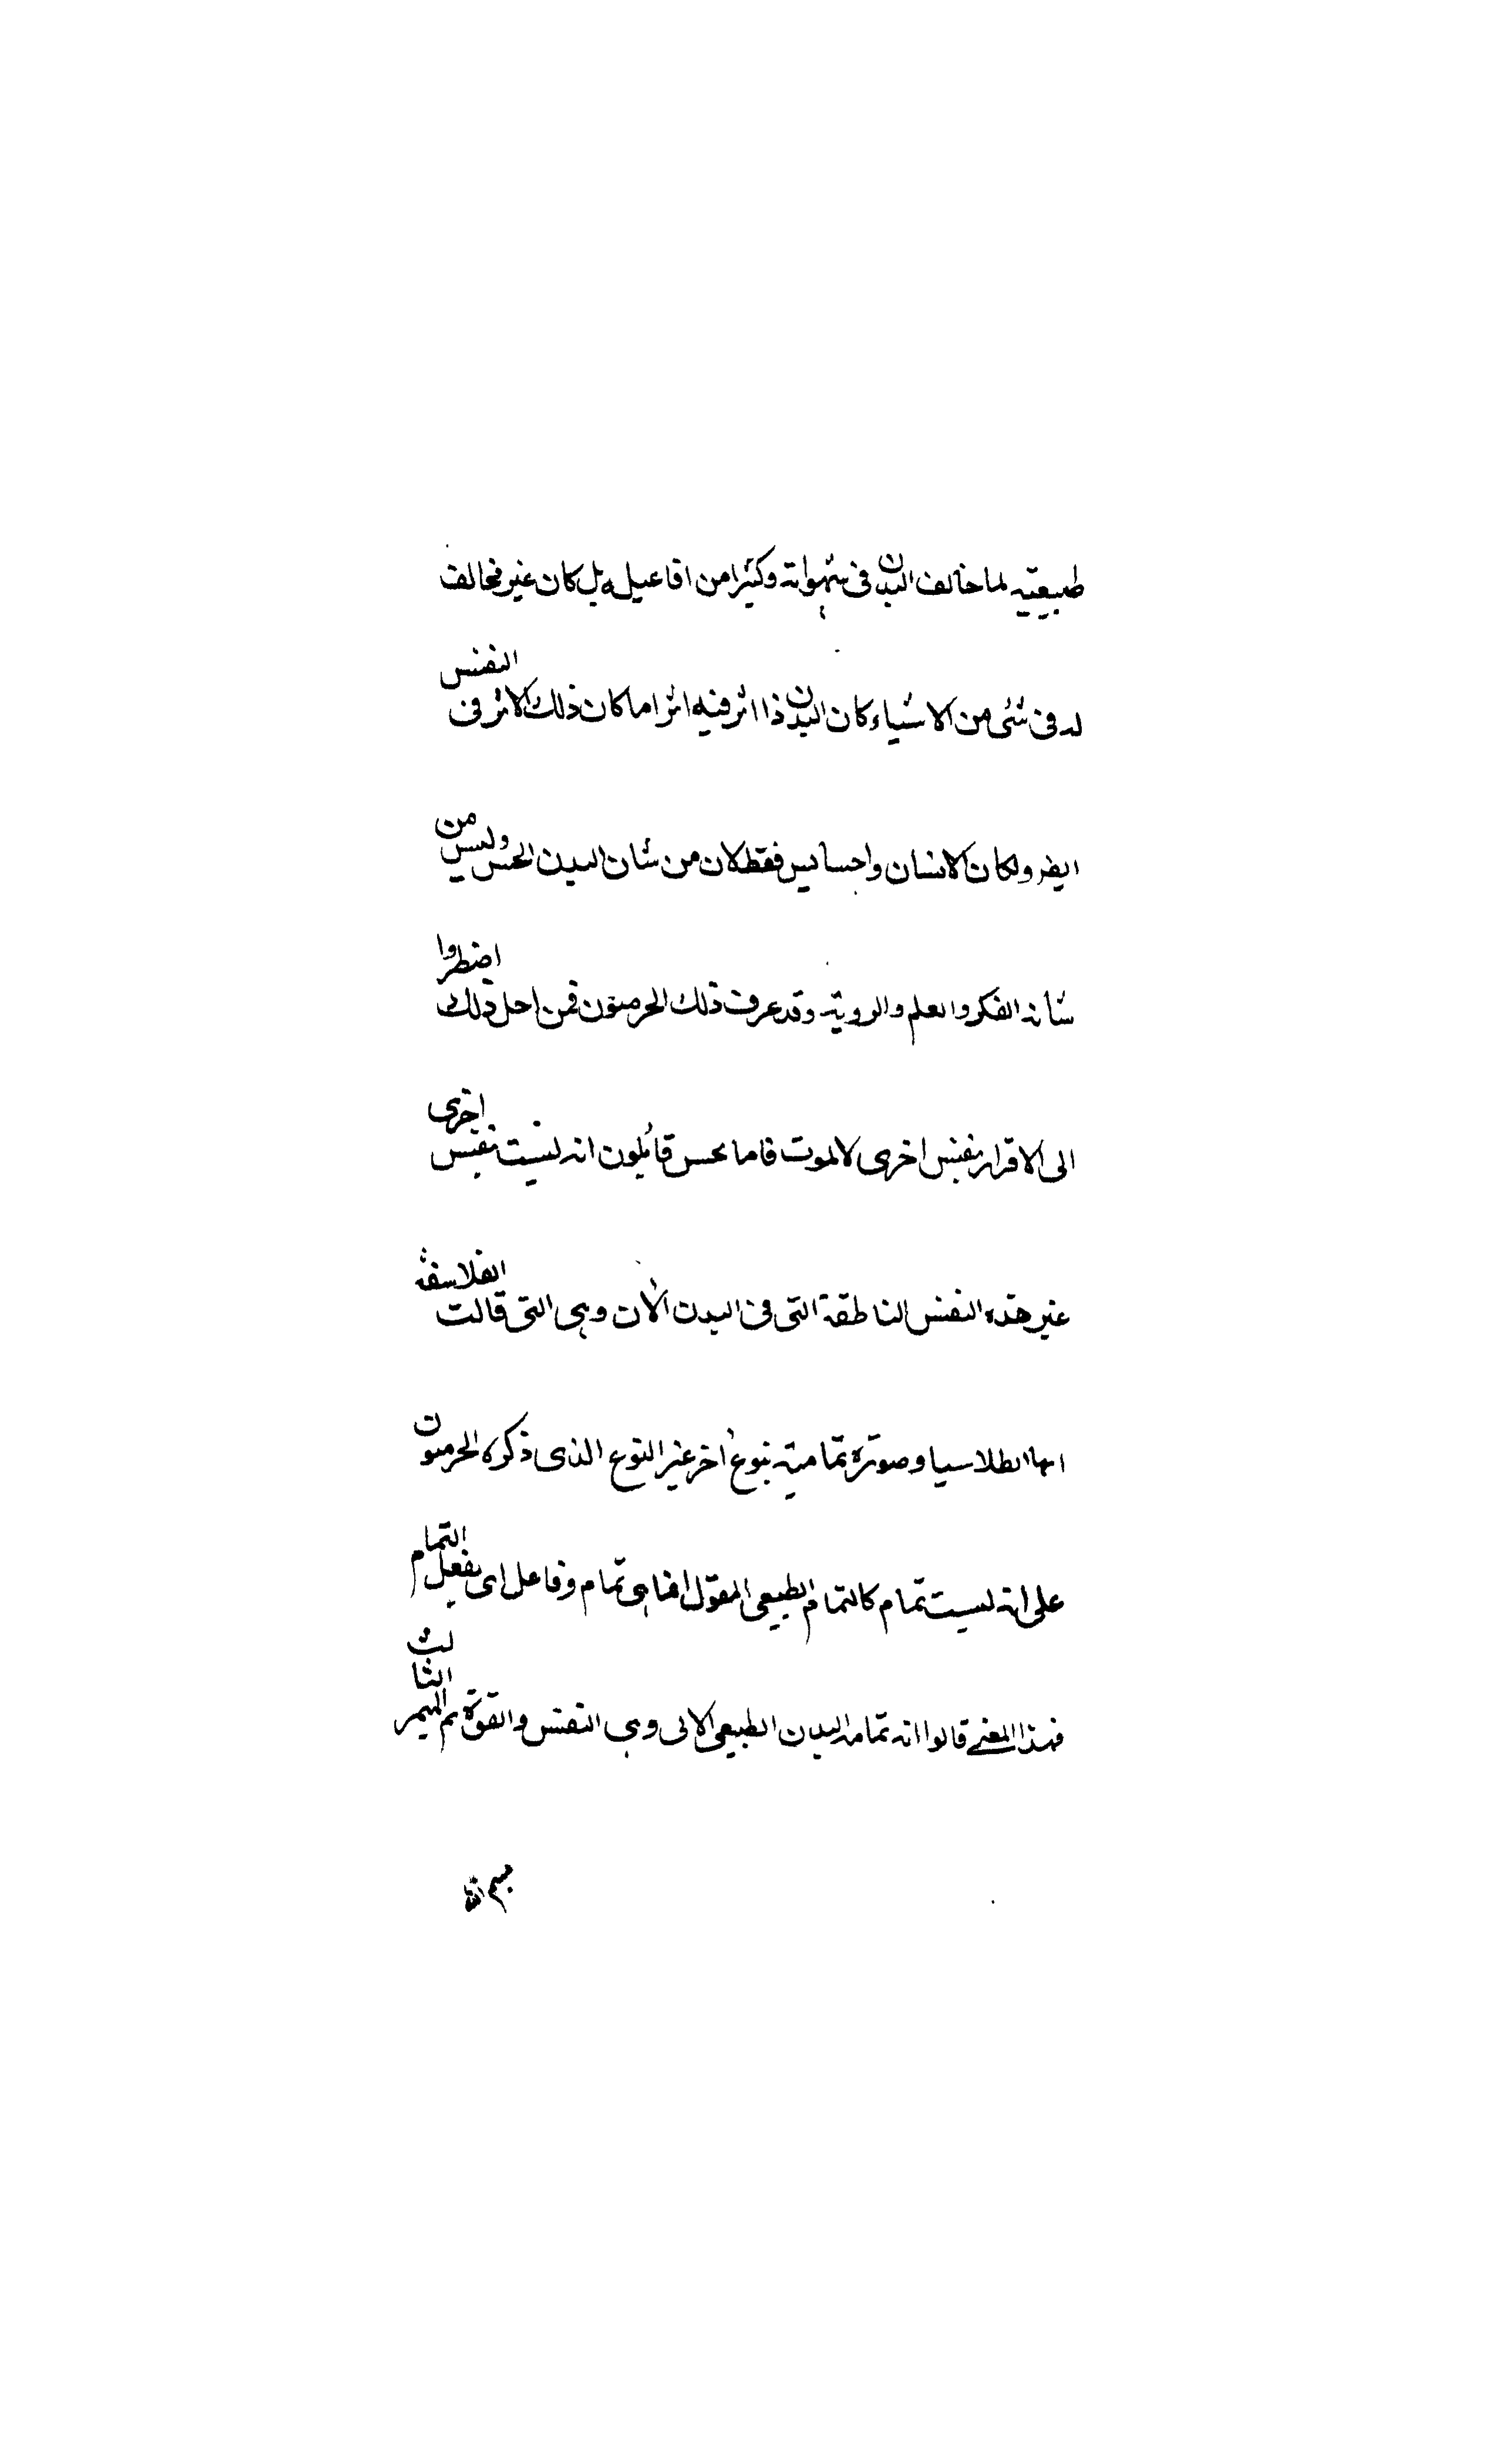 طبيعية لما خالف البدن فى شهواته وكثيرا من افاعيله بل كان غير مخالف
له فى شئ من الاشياء كان البدن ذا اثر فيه اثرا ما كان ذلك الاثر فى النفس
ايضر ولكان الانسان واحسايس فقط لان من شان البدن الحس وليس من
شأنه الفكر والعلم والروية وقد عرف ذلك الجرميون فمن اجل ذلك اضطروا
الى الاقرار بنفس اخرى لا لموت فاما نحن قائلون انه ليست نفس اخرى
غير هذه النفس الناطقة التى فى البدن الأن وهى التى قالت الفلاسفة
انها انطلاسيا وصورة تمامية بنوع أخر غير النوع الذى ذكره الجرميون
على انه ليست تمام كالتمام الطبيعى المفعول انما هى تمام وفاعل اى يفعل التمام
فبهذا المعنى قالوا انه تمامه البدن الطبيعى الالى وهى النفس والقوة تم الميمر الثالث